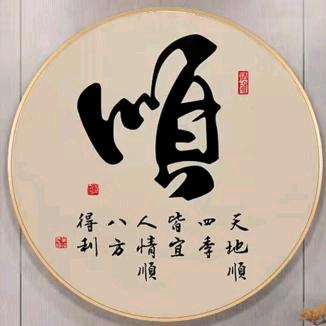 順
天地順
四季
皆宜
人情順
八方
得利